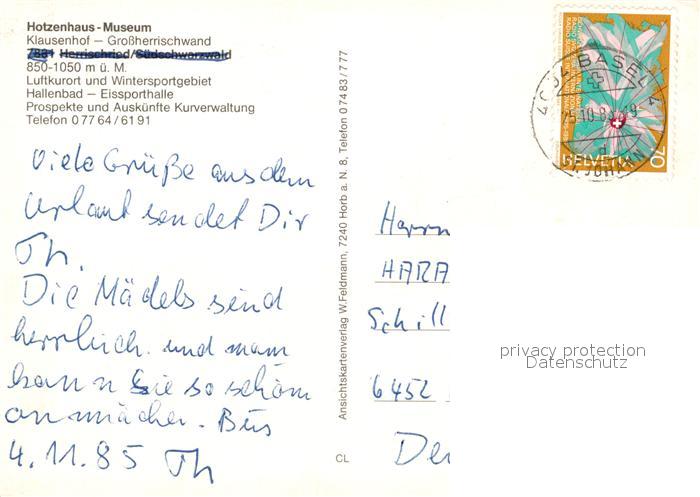 Hotzenhaus-Museum
Klausenhof – Großherrischwand
7881 Herrischried/Südschwarzwald
850-1050 m ü. M.
Luftkurort und Wintersportgebiet
Hallenbad – Eissporthalle
Prospekte und Auskünfte Kurverwaltung
Telefon 0 77 64 / 61 91
Viele Grüße aus dem
Urlaub sendet Dir
Th.
Die Mädels sind
herrlich. und man
kann sie so schön
anmachen. Bis
4.11.85 Th
Ansichtskartenverlag W.Feldmann, 7240 Horb a. N. 8, Telefon 0 74 83 / 7 77
CL
BASEL
HELVETIA 70
Herrn
HARA
Schill
6452
De
privacy protection
Datenschutz